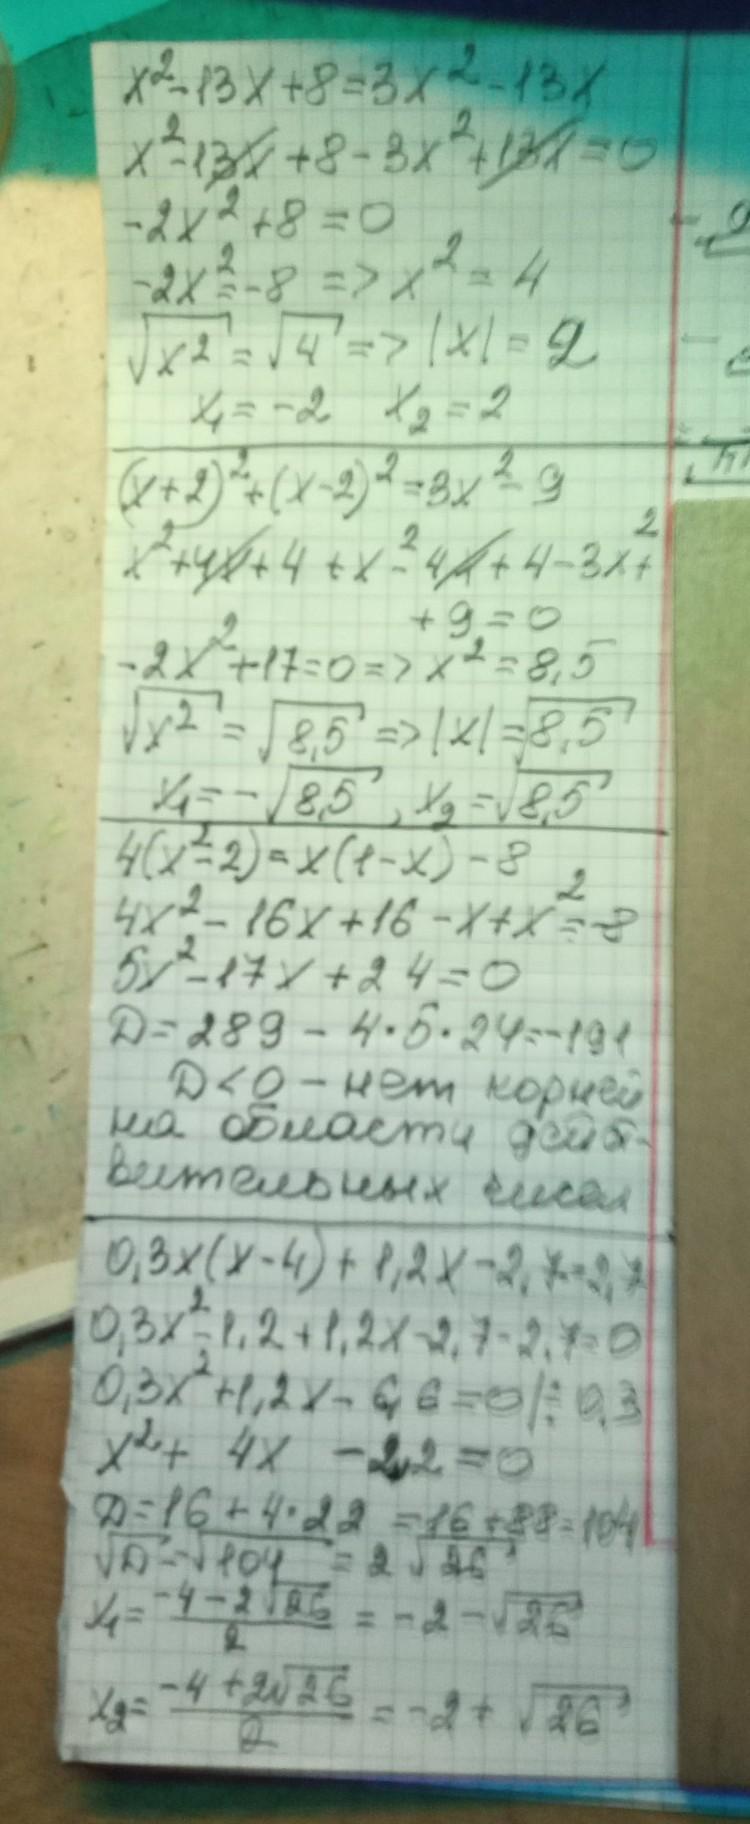 x²-13x+8=3x²-13x
x²-13x+8-3x²+13x=0
-2x²+8=0
-2x²=-8 => x²=4
√x² = √4 => |x| = 2
x₁=-2 x₂=2
(x+2)²+(x-2)²=3x²-9
x²+4x+4+x²-4x+4-3x²+
+9=0
-2x²+17=0 => x²=8,5
√x² = √8,5 => |x|=√8,5
x₁=-√8,5, x₂=√8,5
4(x²-2)=x(1-x)-8
4x²-16x+16-x+x²=-8
5x²-17x+24=0
D=289-4·5·24=-191
D<0 - нет корней
на области дейст-
вительных чисел
0,3x(x-4)+1,2x-2,7=2,7
0,3x²-1,2+1,2x-2,7-2,7=0
0,3x²+1,2x-6,6=0/:0,3
x²+ 4x -22=0
D=16+4·22 =16+88=104
√D=√104 = 2√26
x₁= (-4-2√26)/2 = -2-√26
x₂= (-4+2√26)/2 = -2+√26